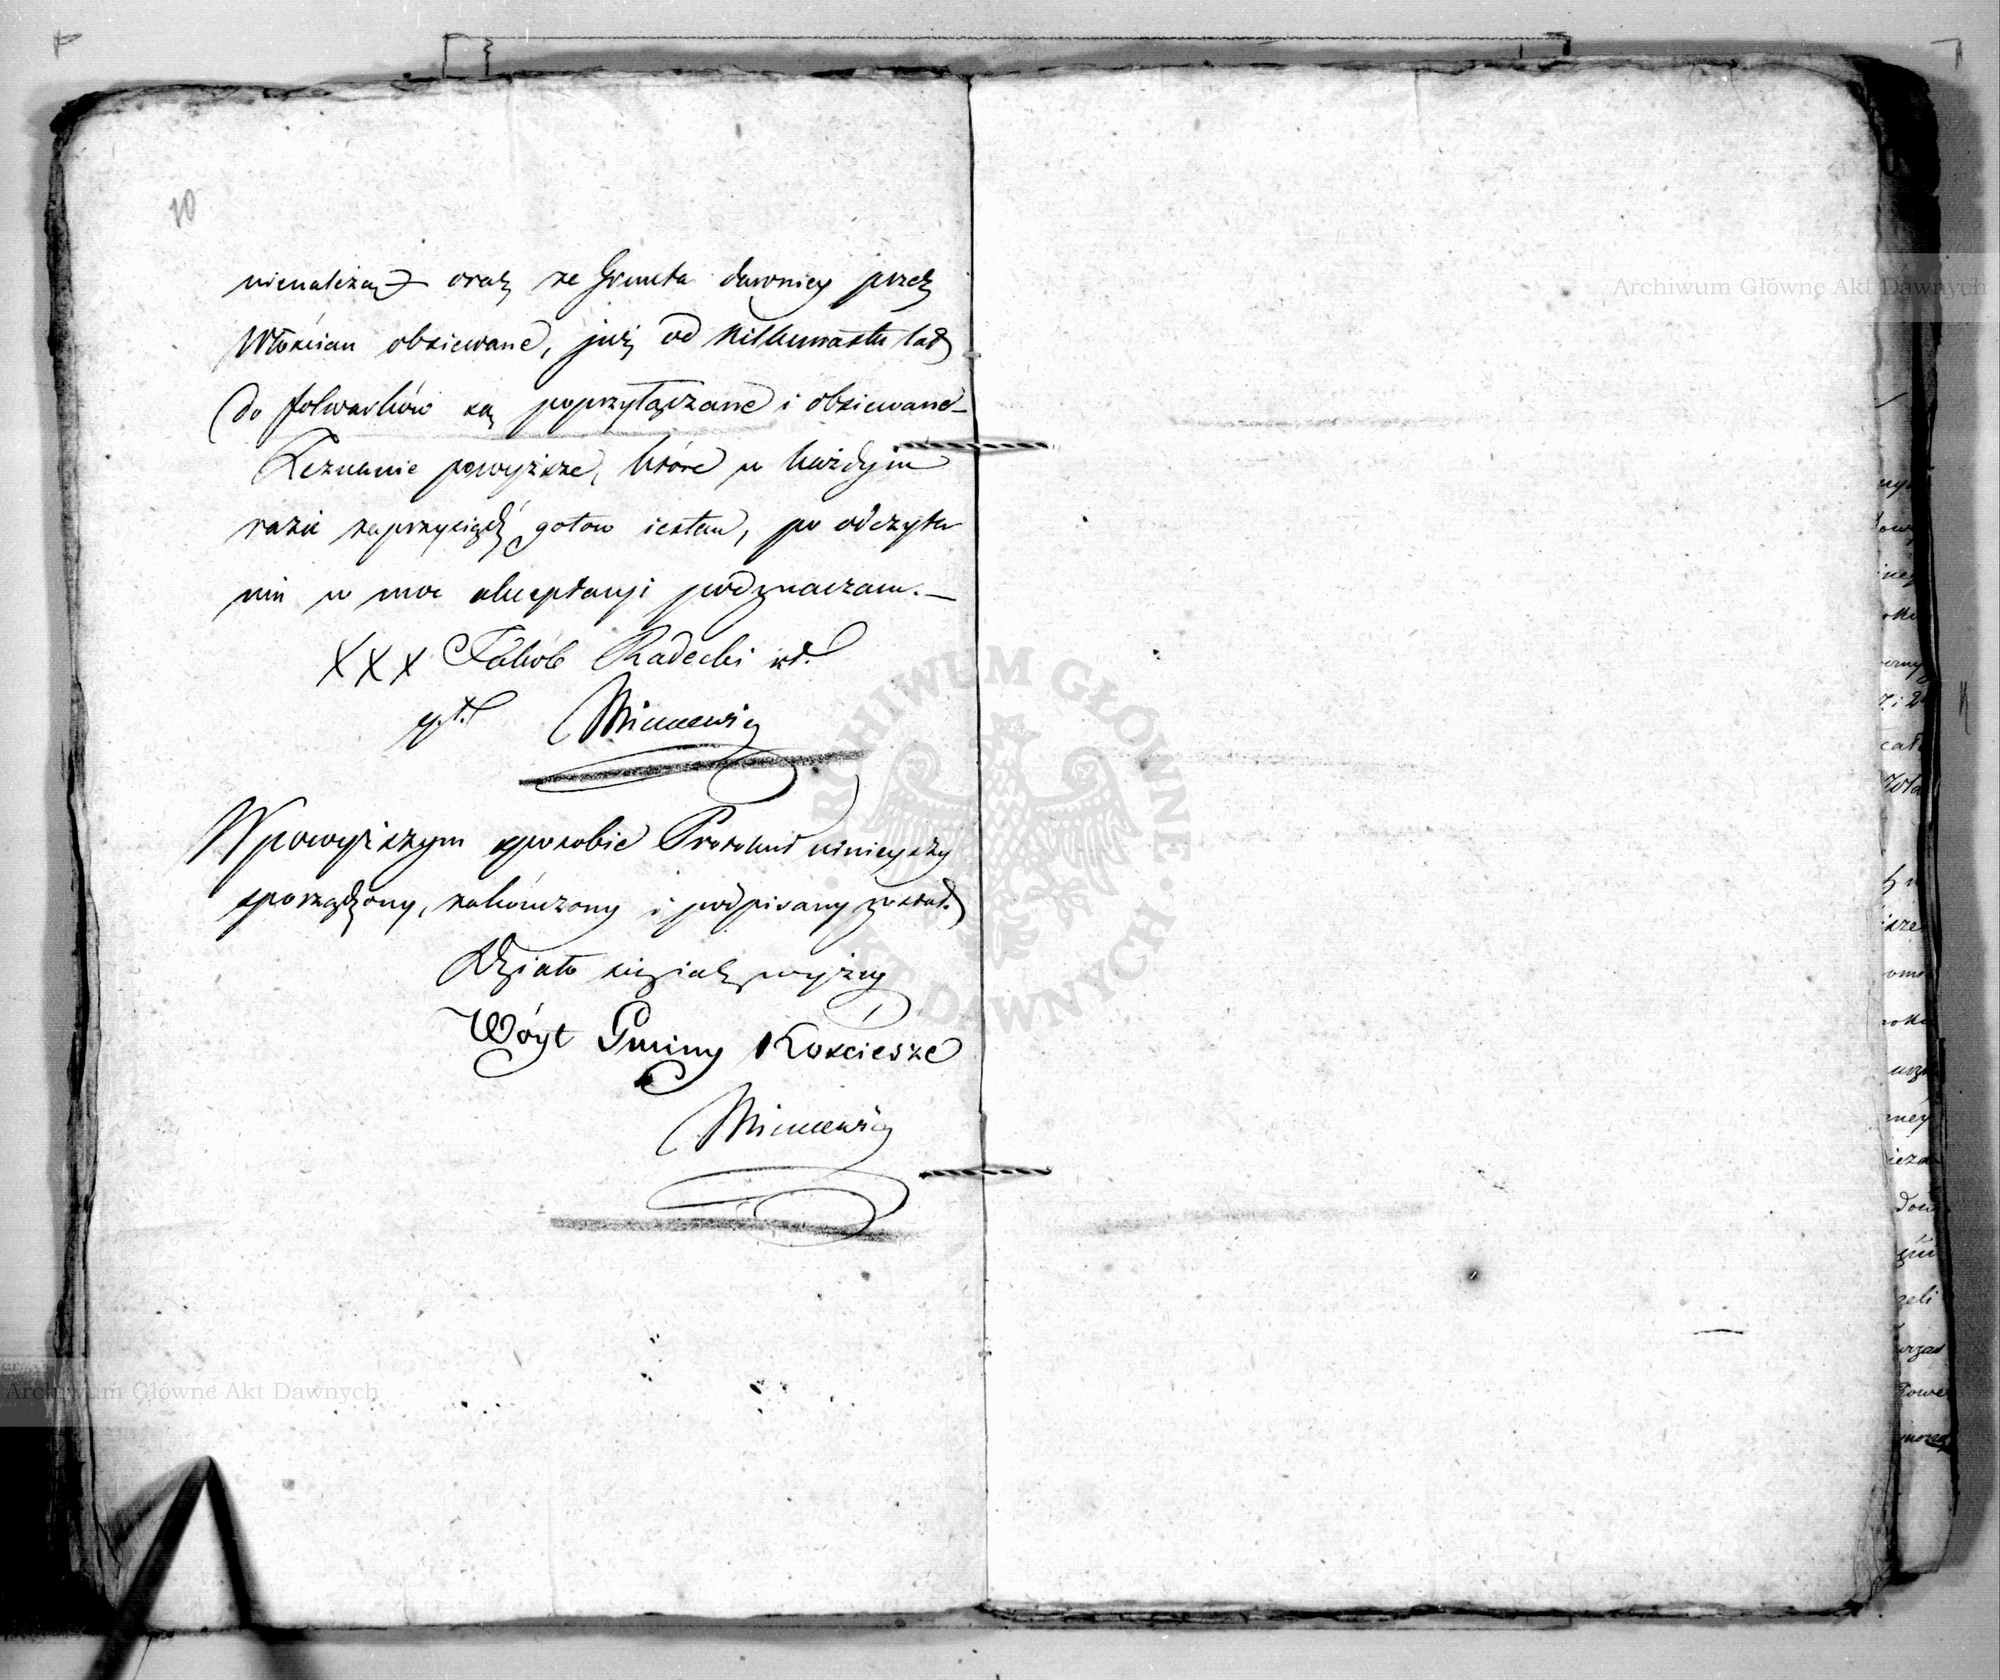 10
nienależą oraz że Grunta dawniey przez
Włościan obsiewane, już od kilkunastu lat
do folwarków są poprzyłączane i obsiewane
Zeznanie powyższe, które w każdym
razie zaprzysiądź gotow iestem, po odczyta
niu w moc akceptacyi podznaczam.
XXX Jakób Radecki
Wpowyższym sposobie Protokuł ninieyszy
sporządzony, zakończony i podpisany został.
Działo się iak wyżey
Wóyt Gminy Kościesze
Archiwum Główne Akt Dawnych
Archiwum Główne Akt Dawnych
ARCHIWUM GŁÓWNE AKT DAWNYCH